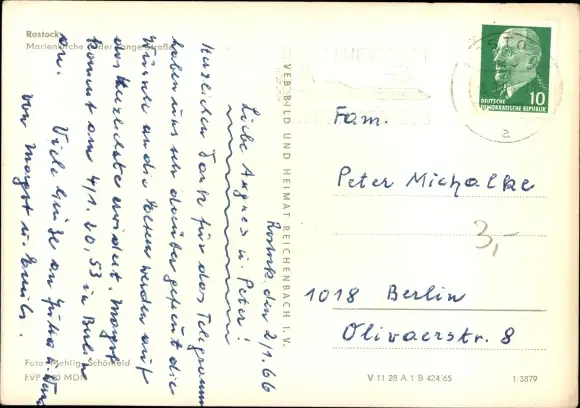 Rostock
Marienkirche in der Lange Straße
Rostock den 2/1.66
Liebe Angnes u. Peter!
Herzlichen Dank für das Telegramm
haben uns sehr darüber gefreut die
Wünsche an die Eltern werden auf
das Herzlichste erwidert. Margot
kommt am 4/1. 20,53 in Berlin
an.
Viele Grüße an
von Margot u.
Foto: Mehlig, Schönfeld
EVP MDN
VEB BILD UND HEIMAT REICHENBACH I. V.
DEUTSCHE
DEMOKRATISCHE REPUBLIK
10
a
Fam.
Peter Michalke
3,-
1018 Berlin
Olivaerstr. 8
V 11 28 A 1 B 424/65
1/3879